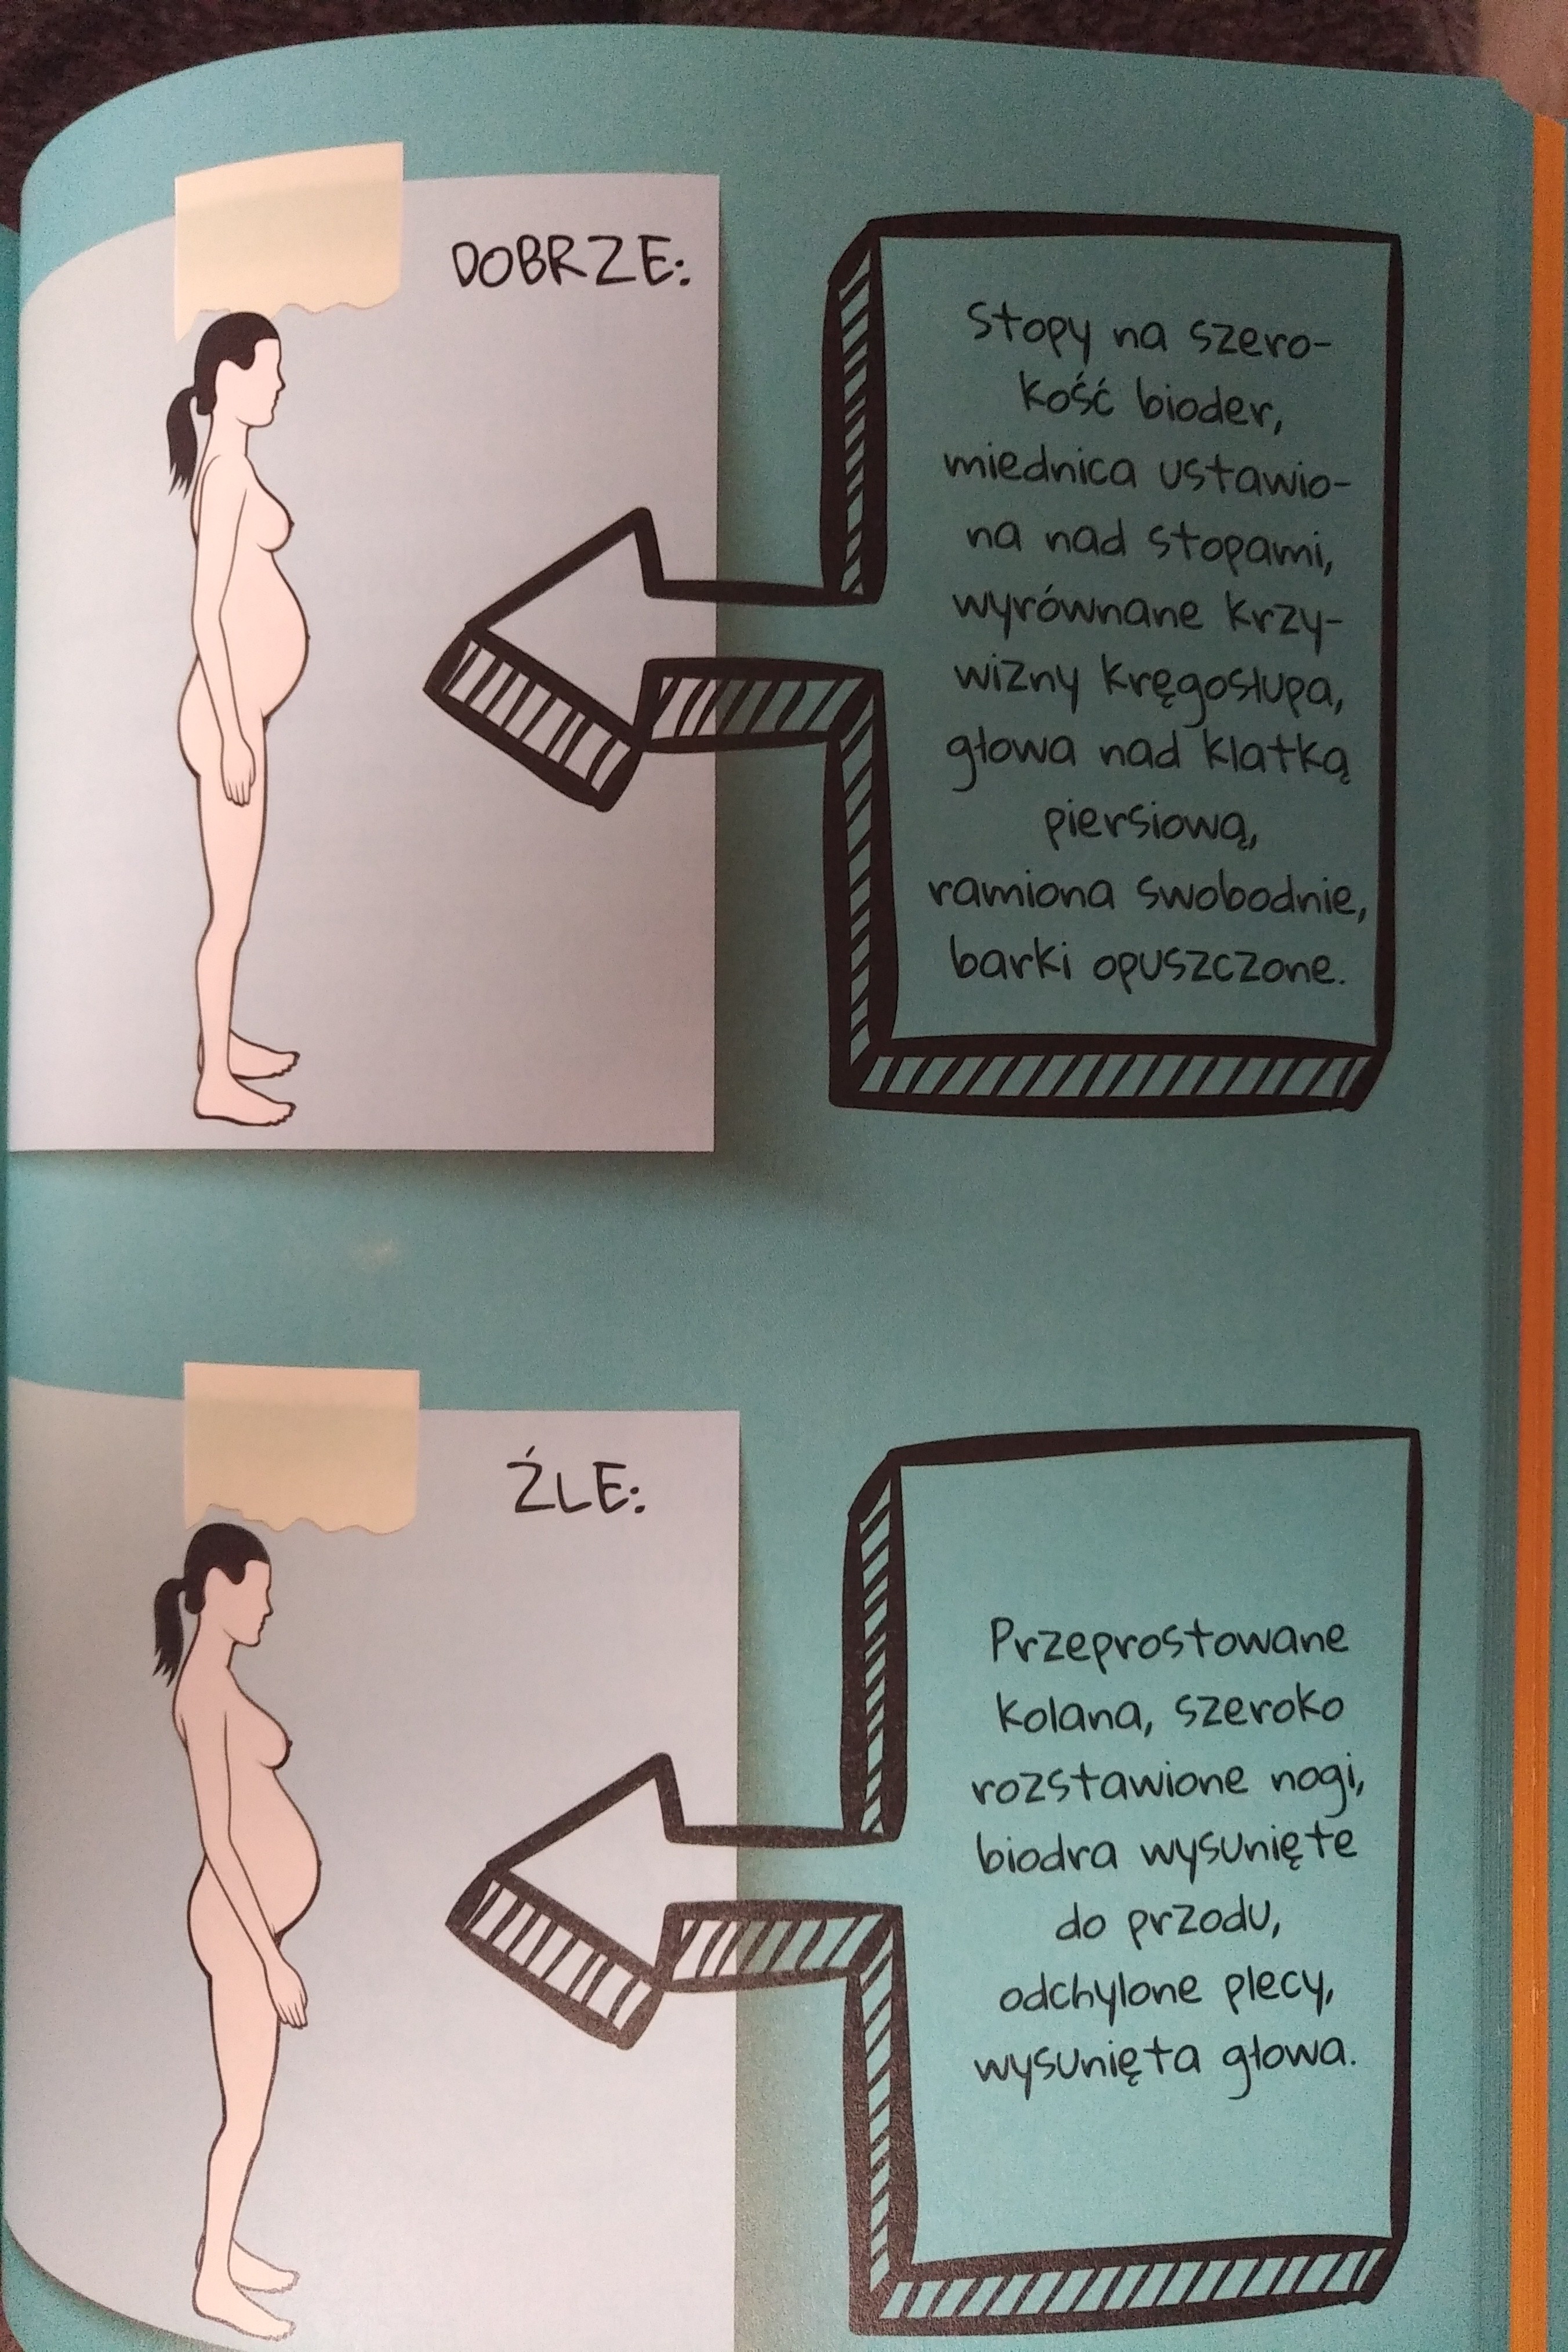 DOBRZE:
Stopy na szero-
kość bioder,
miednica ustawio-
na nad stopami,
wyrównane krzy-
wizny kręgosłupa,
głowa nad klatką
piersiową,
ramiona swobodnie,
barki opuszczone.
ŹLE:
Przeprostowane
kolana, szeroko
rozstawione nogi,
biodra wysunięte
do przodu,
odchylone plecy,
wysunięta głowa.